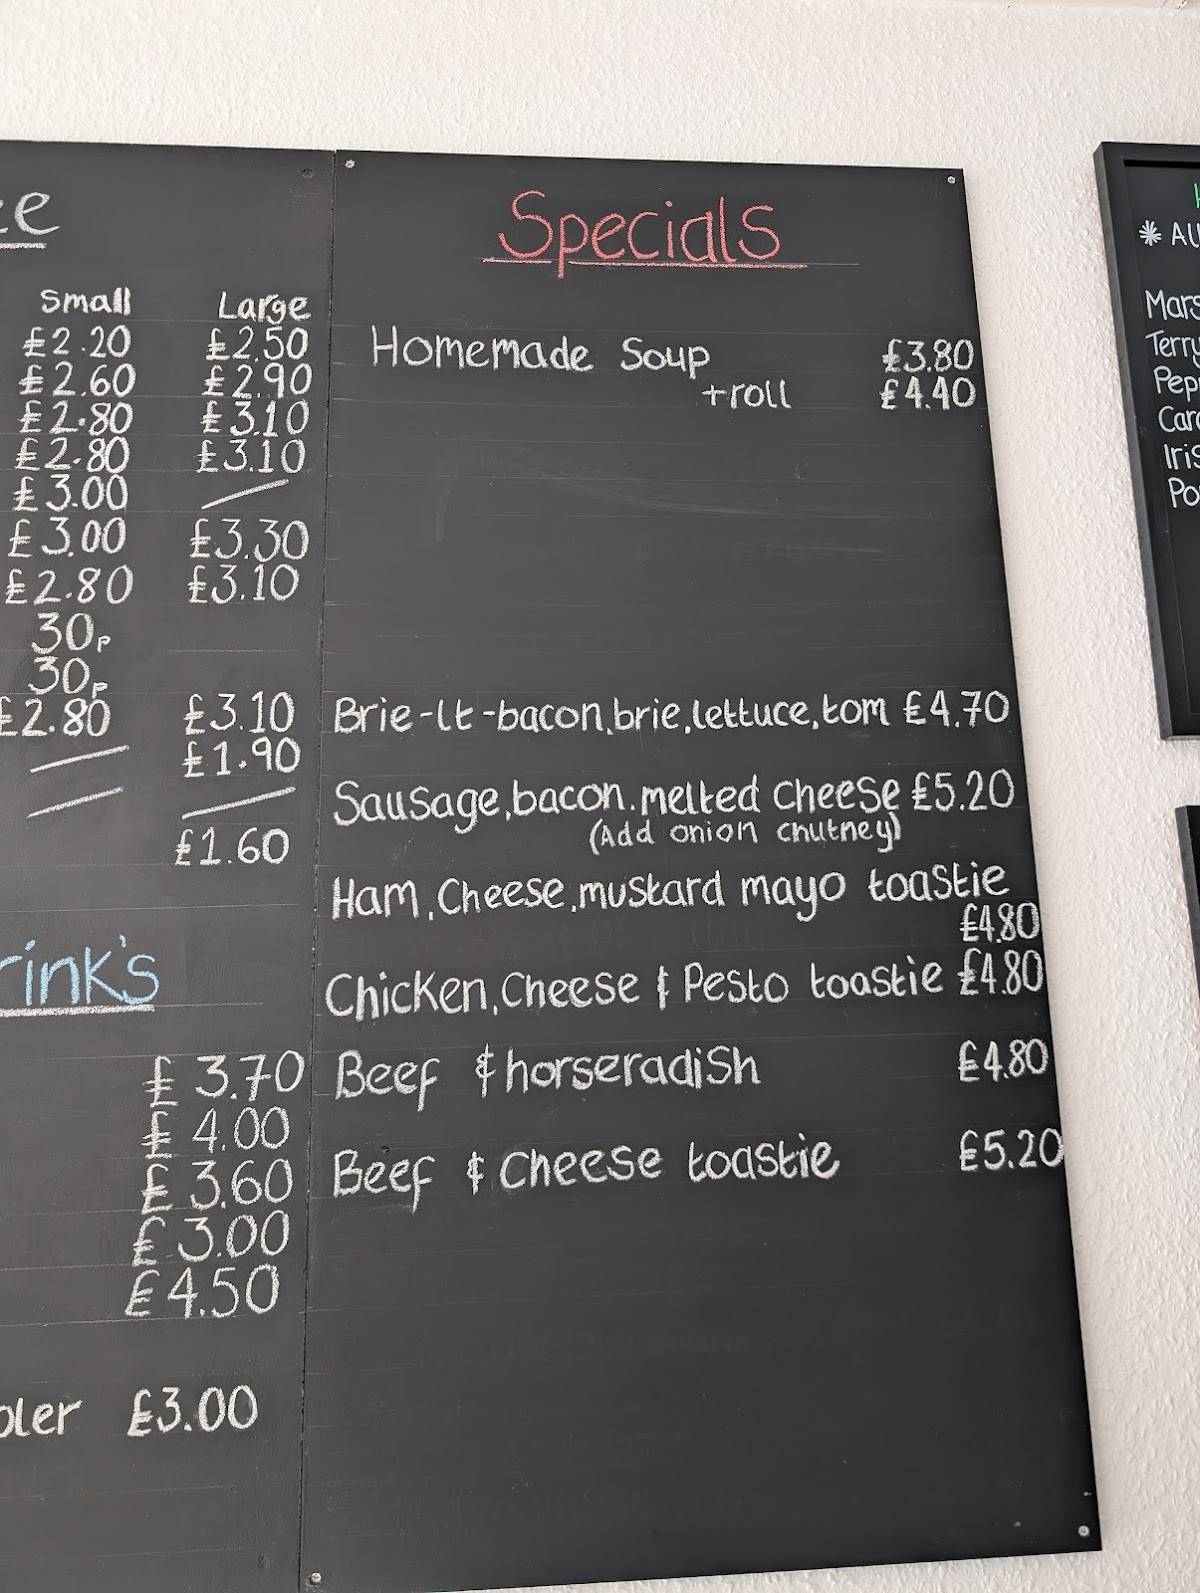 Small Large
£2.20 £2.50
£2.60 £2.90
£2.80 £3.10
£2.80 £3.10
£3.00
£3.00 £3.30
£2.80 £3.10
30p
30p
£2.80 £3.10
£1.90
£1.60
£3.70
£4.00
£3.60
£3.00
£4.50
£3.00
Specials
Homemade Soup £3.80
+roll £4.40
Brie-lt-bacon,brie,lettuce,tom £4.70
Sausage,bacon.melted cheese £5.20
(Add onion chutney)
Ham,Cheese,mustard mayo toastie
£4.80
Chicken,Cheese & Pesto toastie £4.80
Beef & horseradish £4.80
Beef & Cheese toastie £5.20